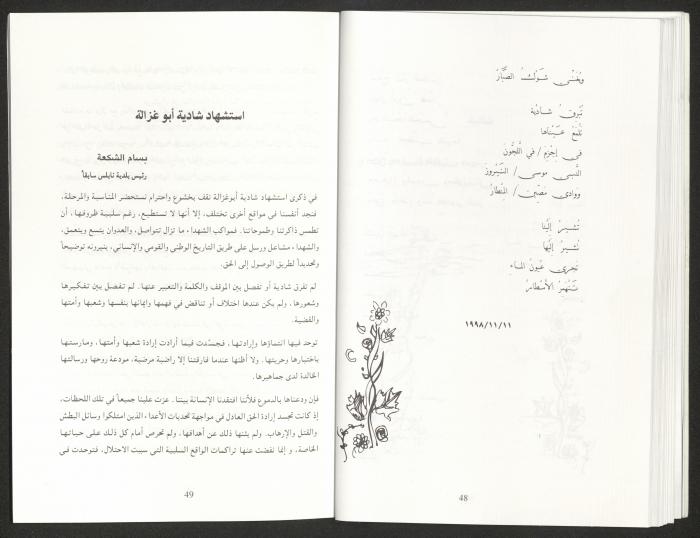 ويُغنّي شوكُ الصَّبَّارْ
تَبْرقُ شادية
تلمعُ عيناها
في إجْزِم / في اللَّجون
النَّبي موسى / السّنديون
ووادي مصّين / المنطارْ
تشيرُ إلينا
تشيرُ إليها
تجري عيونُ الماء
تنهمرُ الأمطارُ
١٩٩٨/١١/١١
48
استشهاد شادية أبو غزالة
بسام الشكعة
رئيس بلدية نابلس سابقاً
في ذكرى استشهاد شادية أبوغزالة نقف بخشوع واحترام نستحضر المناسبة والمرحلة،
فنجد أنفسنا في مواقع أخرى تختلف، إلا أنها لا تستطيع، رغم سلبية ظروفها، أن
تطمس ذاكرتنا وطموحاتنا. فمواكب الشهداء ما تزال تتواصل، والعدوان يتسع ويتعمق،
والشهداء مشاعل ورسل على طريق التاريخ الوطني والقومي والإنساني، ينيرونه توضيحاً
وتحديداً لطريق الوصول إلى الحق.
لم تفرق شادية أو تفصل بين الموقف والكلمة والتعبير عنها. لم تفصل بين تفكيرها
وشعورها، ولم يكن عندها اختلاف أو تناقض في فهمها وإيمانها بنفسها وشعبها وأمتها
والقضية.
توحد فيها انتماؤها وإرادتها، فجسّدت فيما أرادت إرادة شعبها وأمتها، ومارستها
باختيارها وحريتها. ولا أظنها عندما فارقتنا إلا راضية مرضية، مودعة روحها ورسالتها
الخالدة لدى جماهيرها.
فإن ودعناها بالدموع فلأننا افتقدنا الإنسانة بيننا. عزت علينا جميعاً في تلك اللحظات،
إذ كانت تجسد إرادة الحق العادل في مواجهة تحديات الأعداء الذين امتلكوا وسائل البطش
والقتل والإرهاب. ولم يثنها ذلك عن أهدافها، ولم تحرص أمام كل ذلك على حياتها
الخاصة، و إنما نفضت عنها تراكمات الواقع السلبية التي سببت الاحتلال، فتوحدت في
49